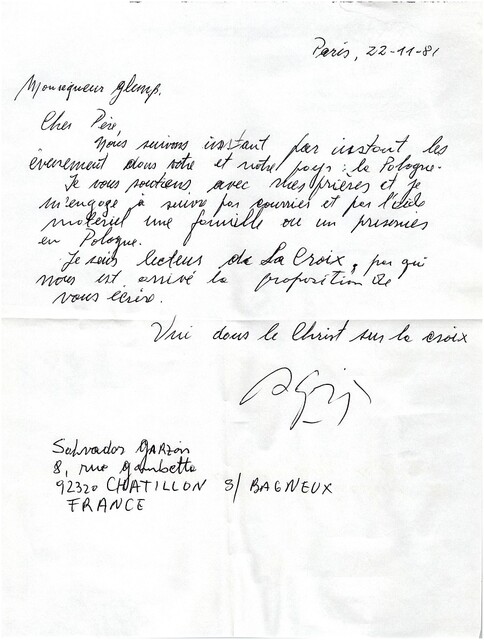 Paris, 22-11-81
Monseigneur Glemp.
Cher Père,
Nous suivons instant par instant les
évenement dans votre et notre pays : la Pologne.
Je vous soutiens avec mes prières et je
m'engage à suivre par courrier et par l'aide
matériel une famille ou un prisonier
en Pologne.
Je suis lecteur de La Croix, par qui
nous est arrivé la proposition de
vous écrire.
Uni dans le Christ sur la croix
Salvador GARZÓN
8, rue Gambetta
92320 CHATILLON S/ BAGNEUX
FRANCE